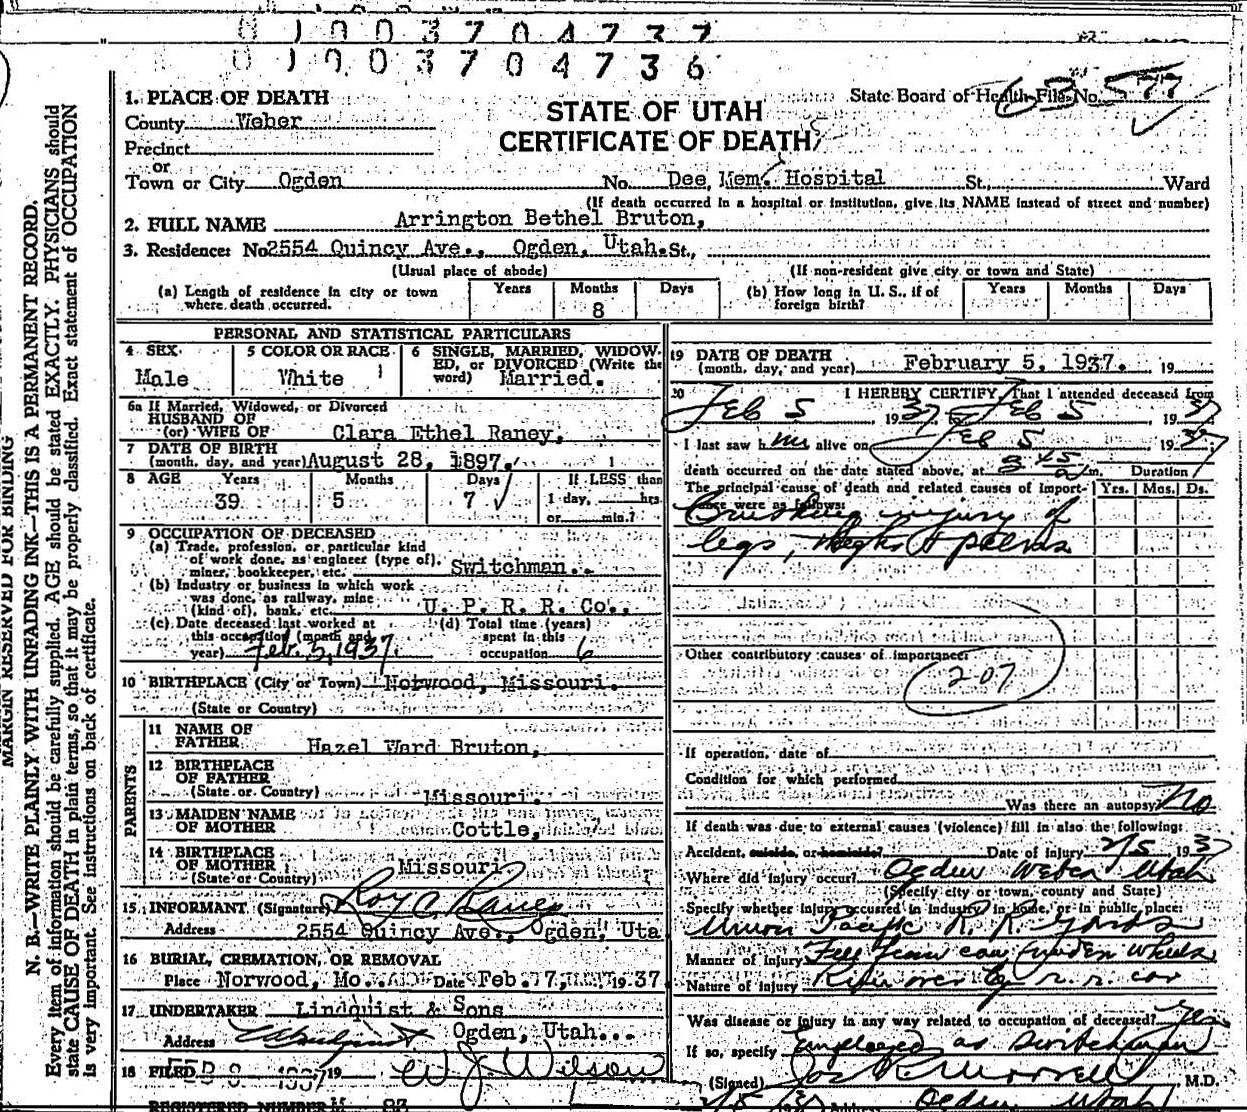 0 1 0 0 3 7 0 4 7 3 7
0 1 0 0 3 7 0 4 7 3 6
MARGIN RESERVED FOR BINDING
N. B.—WRITE PLAINLY WITH UNFADING INK—THIS IS A PERMANENT RECORD.
Every item of information should be carefully supplied. AGE should be stated EXACTLY. PHYSICIANS should
state CAUSE OF DEATH in plain terms, so that it may be properly classified. Exact statement of OCCUPATION
is very important. See instructions on back of certificate.
STATE OF UTAH
CERTIFICATE OF DEATH
State Board of Health File No.
1. PLACE OF DEATH
County Weber
Precinct
or
Town or City Ogden No. Dee, Mem. Hospital St., Ward
(If death occurred in a hospital or institution, give its NAME instead of street and number)
2. FULL NAME Arrington Bethel Bruton,
3. Residence: No 2554 Quincy Ave., Ogden, Utah. St.,
(Usual place of abode) (If non-resident give city or town and State)
(a) Length of residence in city or town where death occurred. Years Months 8 Days
(b) How long in U. S., if of foreign birth? Years Months Days
PERSONAL AND STATISTICAL PARTICULARS
4 SEX Male
5 COLOR OR RACE White
6 SINGLE, MARRIED, WIDOWED, or DIVORCED (Write the word) Married.
6a If Married, Widowed, or Divorced
HUSBAND OF
(or) WIFE OF Clara Ethel Raney,
7 DATE OF BIRTH
(month, day, and year) August 28, 1897.
8 AGE Years 39 Months 5 Days 7 If LESS than 1 day, hrs. or min.?
9 OCCUPATION OF DECEASED
(a) Trade, profession, or particular kind
of work done, as engineer (type of),
miner, bookkeeper, etc. Switchman..
(b) Industry or business in which work
was done, as railway, mine
(kind of), bank, etc. U. P. R. R. Co.,
(c) Date deceased last worked at
this occupation (month and
year) Feb. 5, 1937.
(d) Total time (years)
spent in this
occupation 6
10 BIRTHPLACE (City or Town) Norwood, Missouri.
(State or Country)
PARENTS
11 NAME OF
FATHER Hazel Ward Bruton,
12 BIRTHPLACE
OF FATHER
(State or Country) Missouri.
13 MAIDEN NAME
OF MOTHER Cottle,
14 BIRTHPLACE
OF MOTHER
(State or Country) Missouri
15 INFORMANT (Signature) Roy C Raney
Address 2554 Quincy Ave., Ogden, Uta
16 BURIAL, CREMATION, OR REMOVAL
Place Norwood, Mo. Date Feb. 7, 1937.
17 UNDERTAKER Lindquist & Sons
Address Ogden, Utah...
18 FILED FEB 8 1937 19 W J Wilson
REGISTERED NUMBER 83
19 DATE OF DEATH
(month, day, and year) February 5, 1937. 19
20 I HEREBY CERTIFY, That I attended deceased from
Feb 5 1937, to Feb 5 1937
I last saw him alive on Feb 5 1937
death occurred on the date stated above, at 3 45 a m. Duration
The principal cause of death and related causes of importance were as follows: Yrs. Mos. Ds.
Crushing injury of
legs, thighs &
Other contributory causes of importance:
207
If operation, date of
Condition for which performed
Was there an autopsy? No
If death was due to external causes (violence) fill in also the following:
Accident, suicide, or homicide? Date of injury 2/5 1937
Where did injury occur? Ogden Weber Utah
(Specify city or town, county and State)
Specify whether injury occurred in industry, in home, or in public place:
Union Pacific R. R. Yards
Manner of Injury Fell from car, under wheels
Nature of Injury Run over by r. r. car
Was disease or injury in any way related to occupation of deceased? Yes
If so, specify Employed as switchman
(Signed) Jos R Morrell M.D.
2/5 1937 Address Ogden Utah